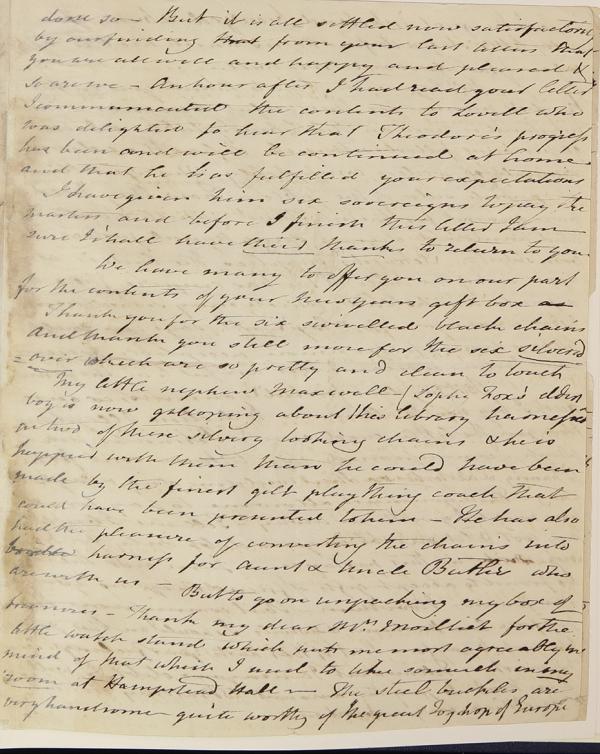 done so – But it is all settled now satisfactorily
by our finding that from your last letters that
you are all well and happy and pleased &
so are we – An hour after I had read your letter
I communicated the contents to Lovell who
was delighted to hear that Theodore's progress
has been and will be continued at home
and that he has fulfilled your expectations
I have given him six sovereigns to pay the
masters and before I finish this letter I am
sure I shall have their thanks to return to you
We have many to offer you on our part
for the contents of your New years gift box
Thank you for the six swivelled black chains
And thank you still more for the six silvered
= over which are so pretty and clean to touch
My little nephew Maxwell (Sophy Fox's eldest
boy is now galloping about this library harnessed
in two of these silvery looking chains & he is
happier with them than he could have been
made by the finest gilt plaything coach that
could have been presented to him – He has also
had the pleasure of converting the chains into
harness for Aunt & Uncle Butler who
are with us – But to go on unpacking my box of
– Thank my dear Mrs Moilliet for the
little watch stand which puts me most agreeably in
mind of that which I used to like so much in my
room at Hampstead Hall – The steel buckles are
very handsome quite worthy of the great Toyshop of Europe